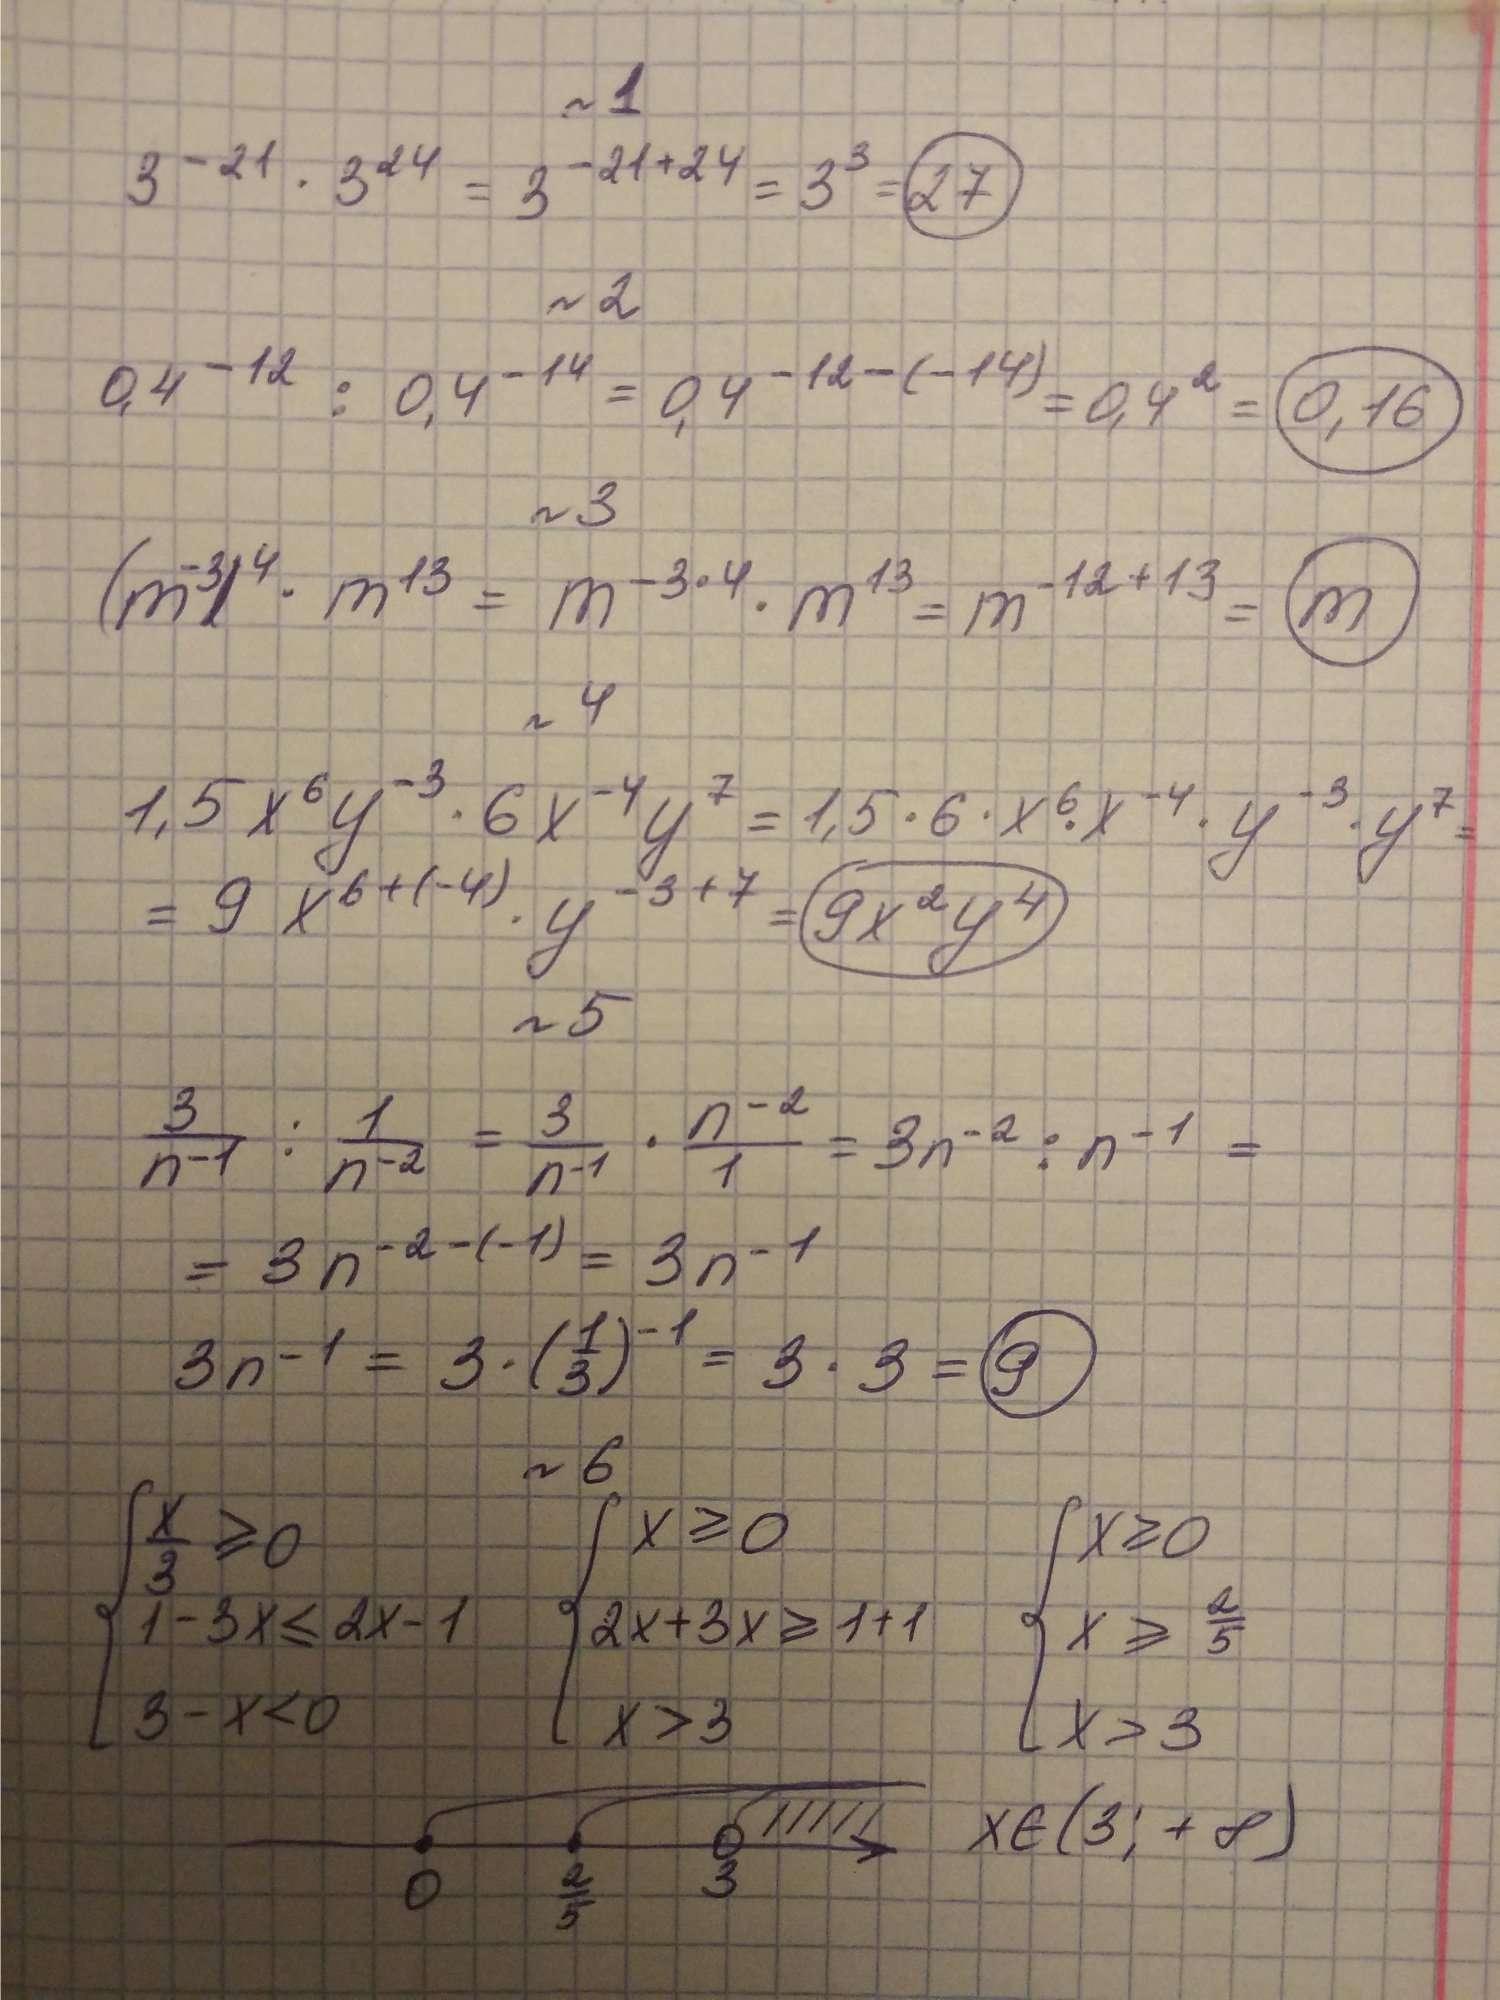 ~1
3^{-21} · 3^{24} = 3^{-21+24} = 3^3 = 27
~2
0,4^{-12} : 0,4^{-14} = 0,4^{-12-(-14)} = 0,4^2 = 0,16
~3
(m^{-3})^4 · m^{13} = m^{-3·4} · m^{13} = m^{-12+13} = m
~4
1,5x^6y^{-3} · 6x^{-4}y^7 = 1,5 · 6 · x^6 · x^{-4} · y^{-3} · y^7 =
= 9 x^{6+(-4)} · y^{-3+7} = 9x^2y^4
~5
3/n^{-1} : 1/n^{-2} = 3/n^{-1} · n^{-2}/1 = 3n^{-2} : n^{-1} =
= 3n^{-2-(-1)} = 3n^{-1}
3n^{-1} = 3 · (1/3)^{-1} = 3 · 3 = 9
~6
{ x/3 ≥ 0 { x ≥ 0 { x ≥ 0
1 - 3x ≤ 2x - 1 2x + 3x ≥ 1 + 1 x ≥ 2/5
3 - x < 0 x > 3 x > 3
x ∈ (3; +∞)
0 2/5 3